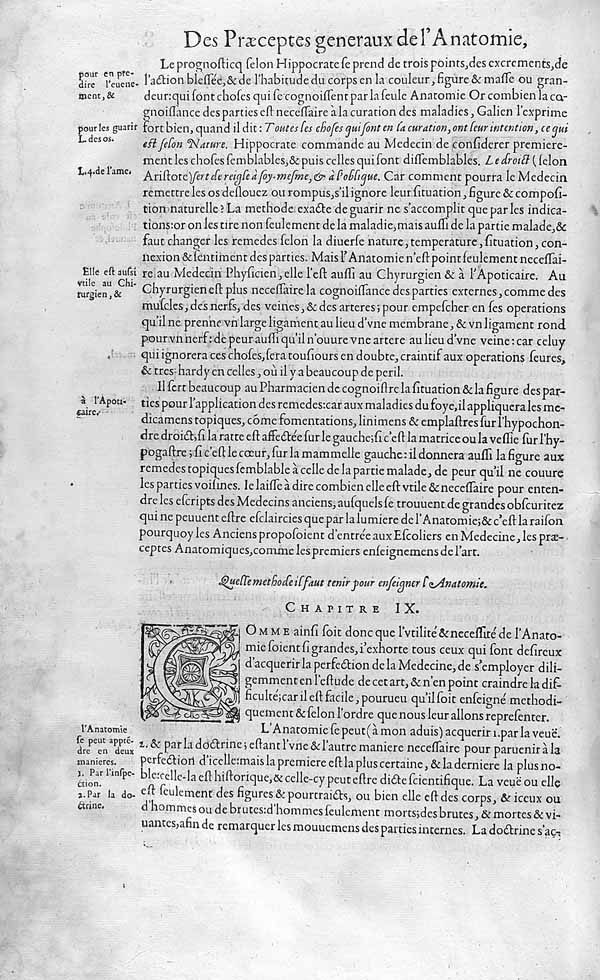 Des Præceptes generaux de l'Anatomie,
Le prognosticq ſelon Hippocrate ſe prend de trois points, des excrements, de
pour en pre-
dire l'euene-
ment, &
l'action bleſſée, & de l'habitude du corps en la couleur, figure & maſſe ou gran-
deur: qui ſont choſes qui ſe cognoiſſent par la ſeule Anatomie Or combien la co-
gnoiſſance des parties eſt neceſſaire à la curation des maladies, Galien l'exprime
pour les guarir
L. des os.
fort bien, quand il dit: Toutes les choſes qui ſont en ſa curation, ont leur intention, ce qui
eſt ſelon Nature. Hippocrate commande au Medecin de conſiderer premiere-
ment les choſes ſemblables, & puis celles qui ſont diſſemblables. Le droict (ſelon
L. 4. de l'ame.
Ariſtote) ſert de reigle à ſoy-meſme, & à l'oblique. Car comment pourra le Medecin
remettre les os deſlouez ou rompus, s'il ignore leur ſituation, figure & compoſi-
tion naturelle? La methode exacte de guarir ne s'accomplit que par les indica-
tions: or on les tire non ſeulement de la maladie, mais auſſi de la partie malade, &
faut changer les remedes ſelon la diuerſe nature, temperature, ſituation, con-
nexion & ſentiment des parties. Mais l'Anatomie n'eſt point ſeulement neceſſai-
Elle eſt auſsi
vtile au Chi-
rurgien, &
re au Medecin Phyſicien, elle l'eſt auſſi au Chyrurgien & à l'Apoticaire. Au
Chyrurgien eſt plus neceſſaire la cognoiſſance des parties externes, comme des
muſcles, des nerfs, des veines, & des arteres; pour empeſcher en ſes operations
qu'il ne prenne vn large ligament au lieu d'vne membrane, & vn ligament rond
pour vn nerf: de peur auſſi qu'il n'ouure vne artere au lieu d'vne veine: car celuy
qui ignorera ces choſes, ſera touſiours en doubte, craintif aux operations ſeures,
& tres-hardy en celles, où il y a beaucoup de peril.
Il ſert beaucoup au Pharmacien de cognoiſtre la ſituation & la figure des par-
à l'Apoti-
caire.
ties pour l'application des remedes: car aux maladies du foye, il appliquera les me-
dicamens topiques, cõme fomentations, linimens & emplaſtres ſur l'hypochon-
dre droict, ſi la ratte eſt affectée ſur le gauche; ſi c'eſt la matrice ou la veſſie ſur l'hy-
pogaſtre; ſi c'eſt le cœur, ſur la mammelle gauche: il donnera auſſi la figure aux
remedes topiques ſemblable à celle de la partie malade, de peur qu'il ne couure
les parties voiſines. Ie laiſſe à dire combien elle eſt vtile & neceſſaire pour enten-
dre les eſcripts des Medecins anciens, auſquels ſe trouuent de grandes obſcuritez
qui ne peuuent eſtre eſclaircies que par la lumiere de l'Anatomie; & c'eſt la raiſon
pourquoy les Anciens propoſoient d'entrée aux Eſcoliers en Medecine, les præ-
ceptes Anatomiques, comme les premiers enſeignemens de l'art.
Quelle methode il faut tenir pour enſeigner l'Anatomie.
CHAPITRE IX.
COMME ainſi ſoit donc que l'vtilité & neceſſité de l'Anato-
mie ſoient ſi grandes, i'exhorte tous ceux qui ſont deſireux
d'acquerir la perfection de la Medecine, de s'employer dili-
gemment en l'eſtude de cet art, & n'en point craindre la dif-
ficulté; car il eſt facile, pourueu qu'il ſoit enſeigné methodi-
quement & ſelon l'ordre que nous leur allons repreſenter.
L'Anatomie ſe peut (à mon aduis) acquerir 1. par la veuë.
l'Anatomie
ſe peut apprẽ-
dre en deux
manieres.
1. Par l'inſpe-
ction.
2. Par la do-
ctrine.
2. & par la doctrine; eſtant l'vne & l'autre maniere neceſſaire pour paruenir à la
perfection d'icelle: mais la premiere eſt la plus certaine, & la derniere la plus no-
ble: celle-la eſt hiſtorique, & celle-cy peut eſtre dicte ſcientifique. La veuë ou elle
eſt ſeulement des figures & pourtraicts, ou bien elle eſt des corps, & iceux ou
d'hommes ou de brutes: d'hommes ſeulement morts; des brutes, & mortes & vi-
uantes, afin de remarquer les mouuemens des parties internes. La doctrine s'ac-